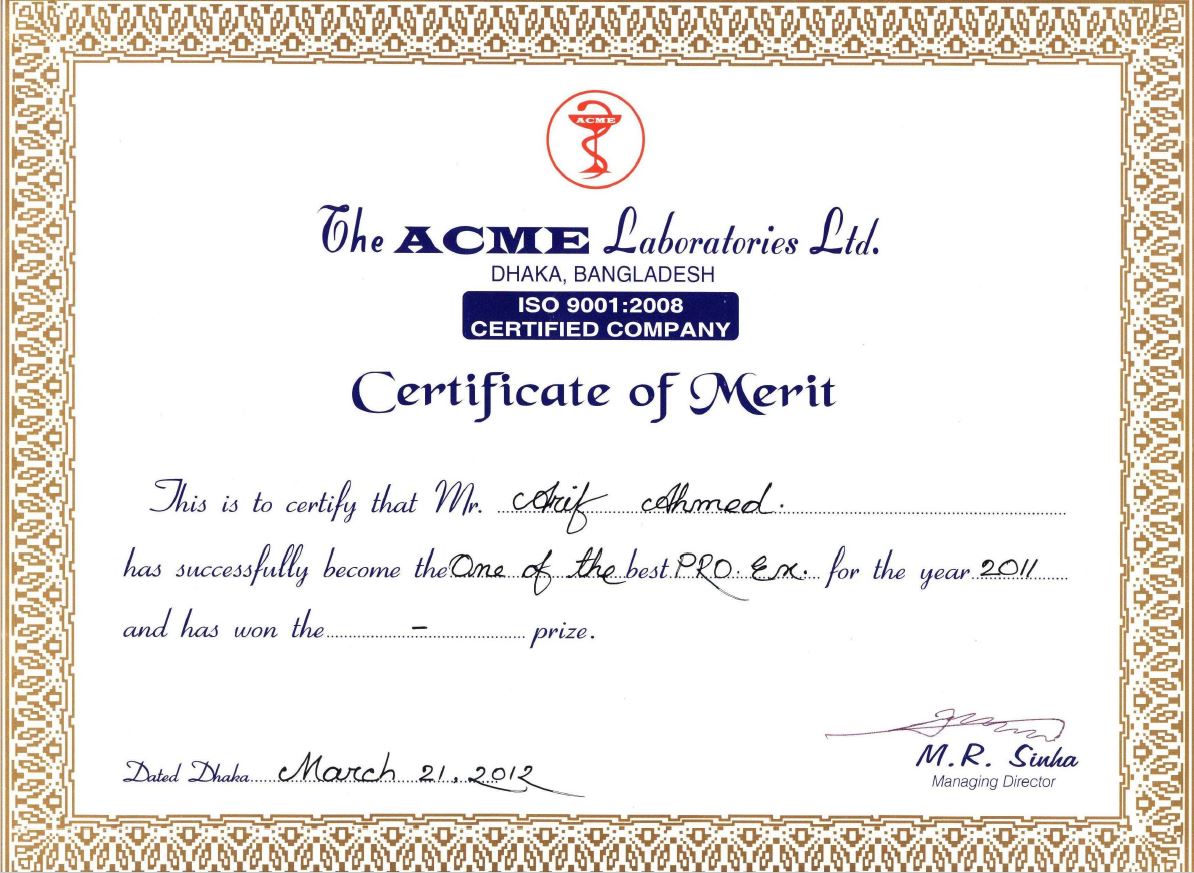 ACME
The ACME Laboratories Ltd.
DHAKA, BANGLADESH
ISO 9001:2008
CERTIFIED COMPANY
Certificate of Merit
This is to certify that Mr. Arif Ahmed.
has successfully become the One of the best PRO. Ex. for the year 2011
and has won the - prize.
Dated Dhaka March 21, 2012
M.R. Sinha
Managing Director